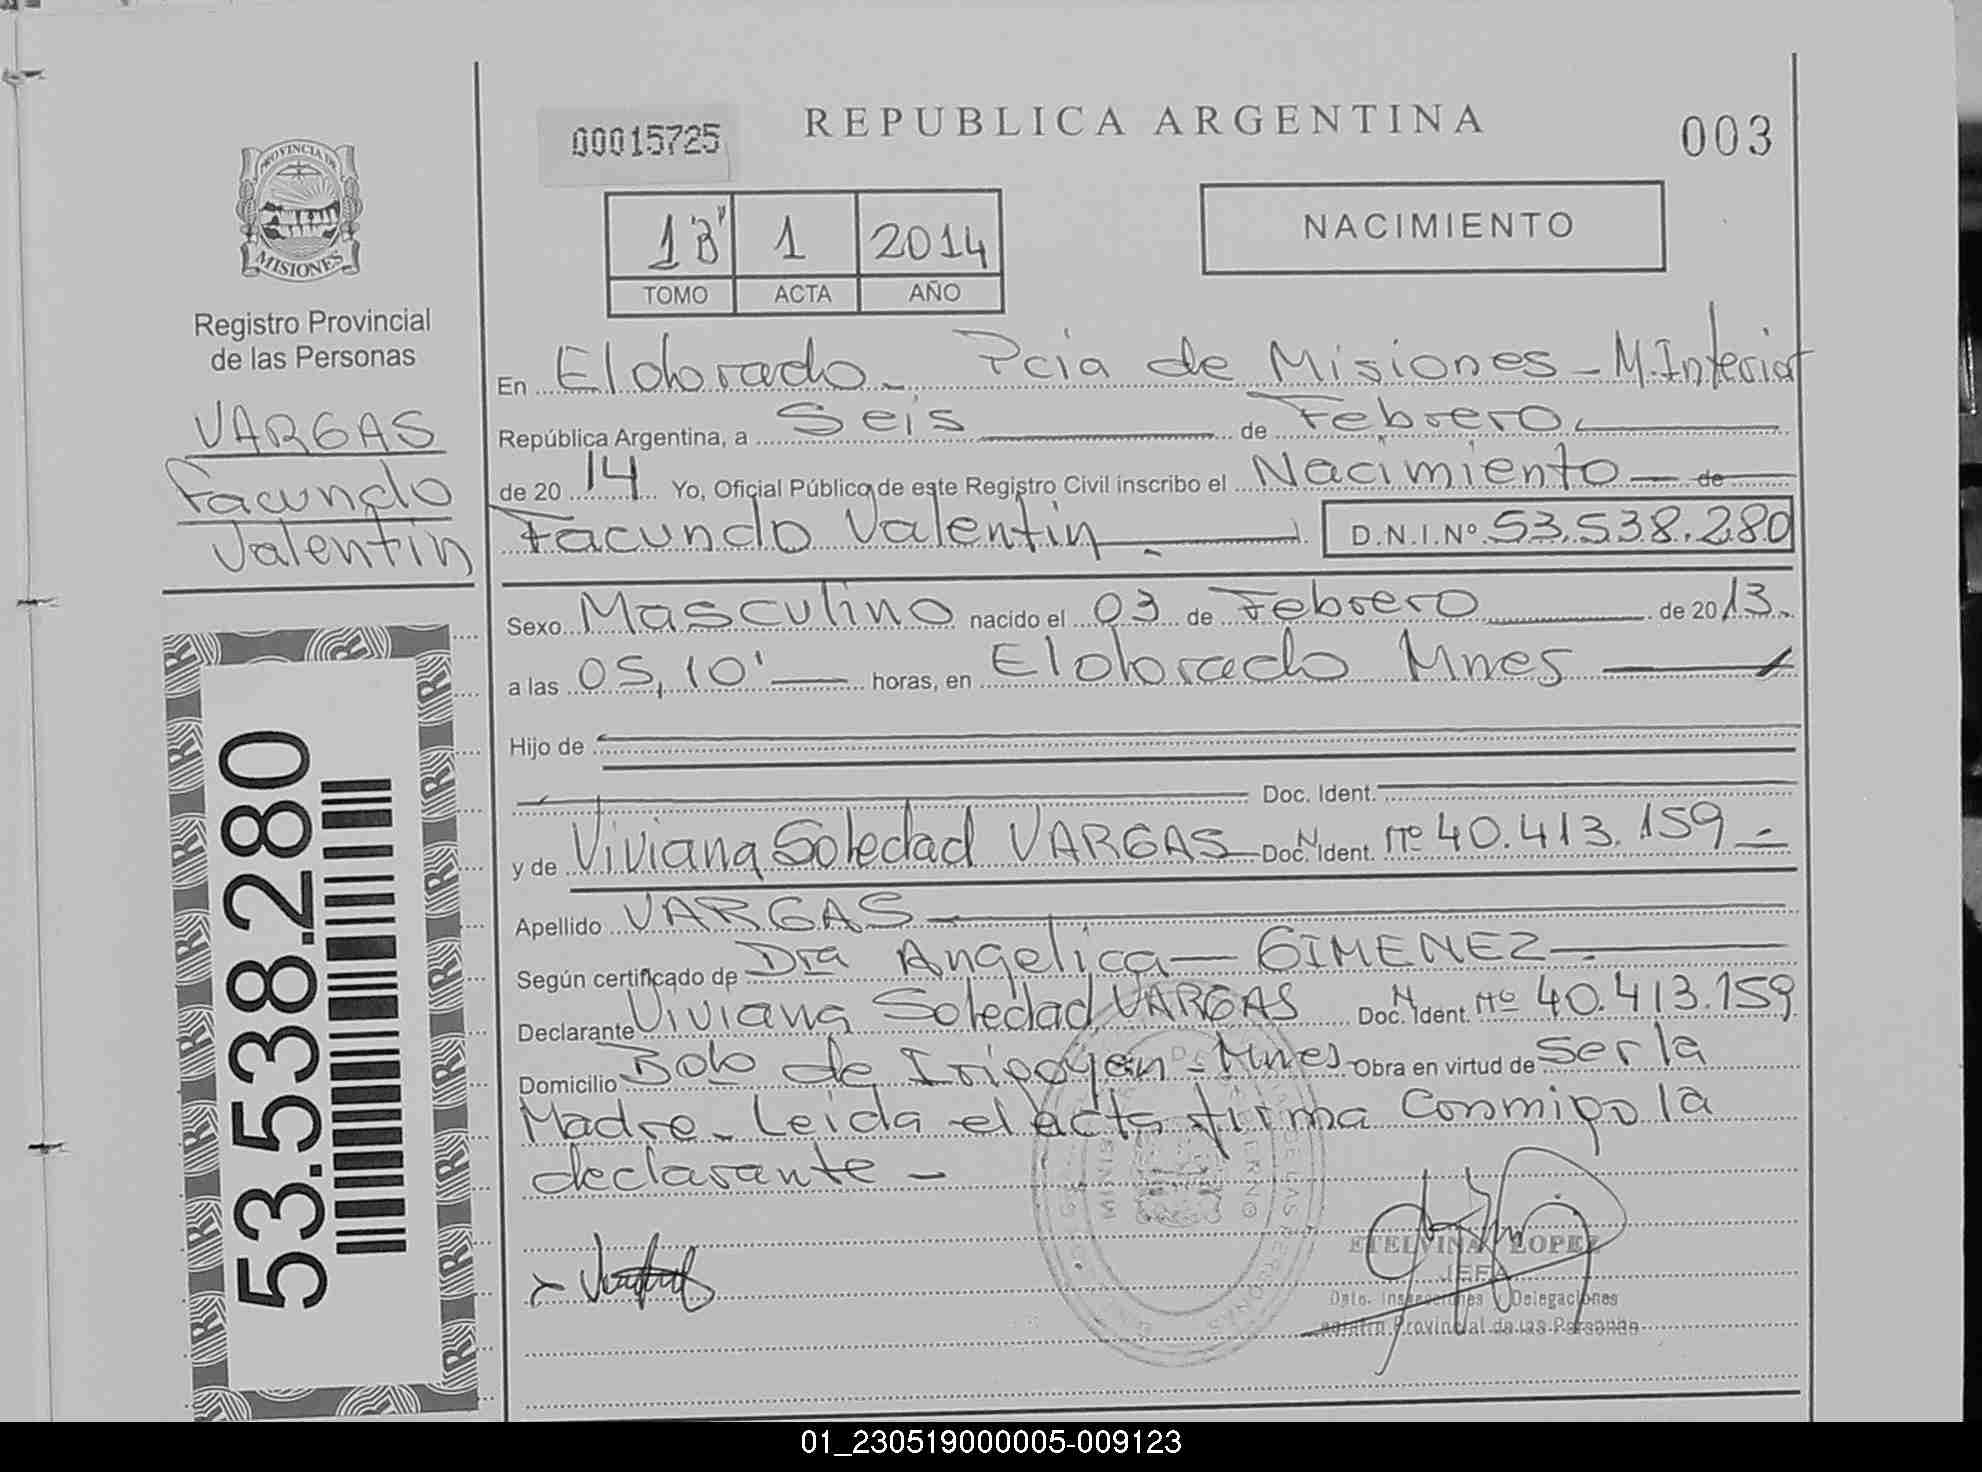 REPUBLICA ARGENTINA
00015725
003
1 "B" 1 2014
TOMO ACTA AÑO
NACIMIENTO
PROVINCIA DE
MISIONES
Registro Provincial
de las Personas
VARGAS
Facundo
Valentin
53.538.280
En Eldorado - Pcia de Misiones - M. Interior
República Argentina, a Seis de Febrero
de 2014 Yo, Oficial Público de este Registro Civil inscribo el Nacimiento de
Facundo Valentin. D.N.I.Nº 53.538.280
Sexo Masculino nacido el 03 de Febrero de 2013.
a las 05,10' horas, en Eldorado Mnes
Hijo de
Doc. Ident.
y de Viviana Soledad VARGAS Doc. N. Ident. Nº 40.413.159 -
Apellido VARGAS
Según certificado de Dra Angelica GIMENEZ
Declarante Viviana Soledad VARGAS Doc. N. Ident. Nº 40.413.159
Domicilio Bdo de Irigoyen - Mnes Obra en virtud de ser la
Madre - Leida el acta firma Conmigo la
declarante -
ETELVINA LOPEZ
JEFA
Dpto. Inspecciones y Delegaciones
Registro Provincial de las Personas
01_230519000005-009123